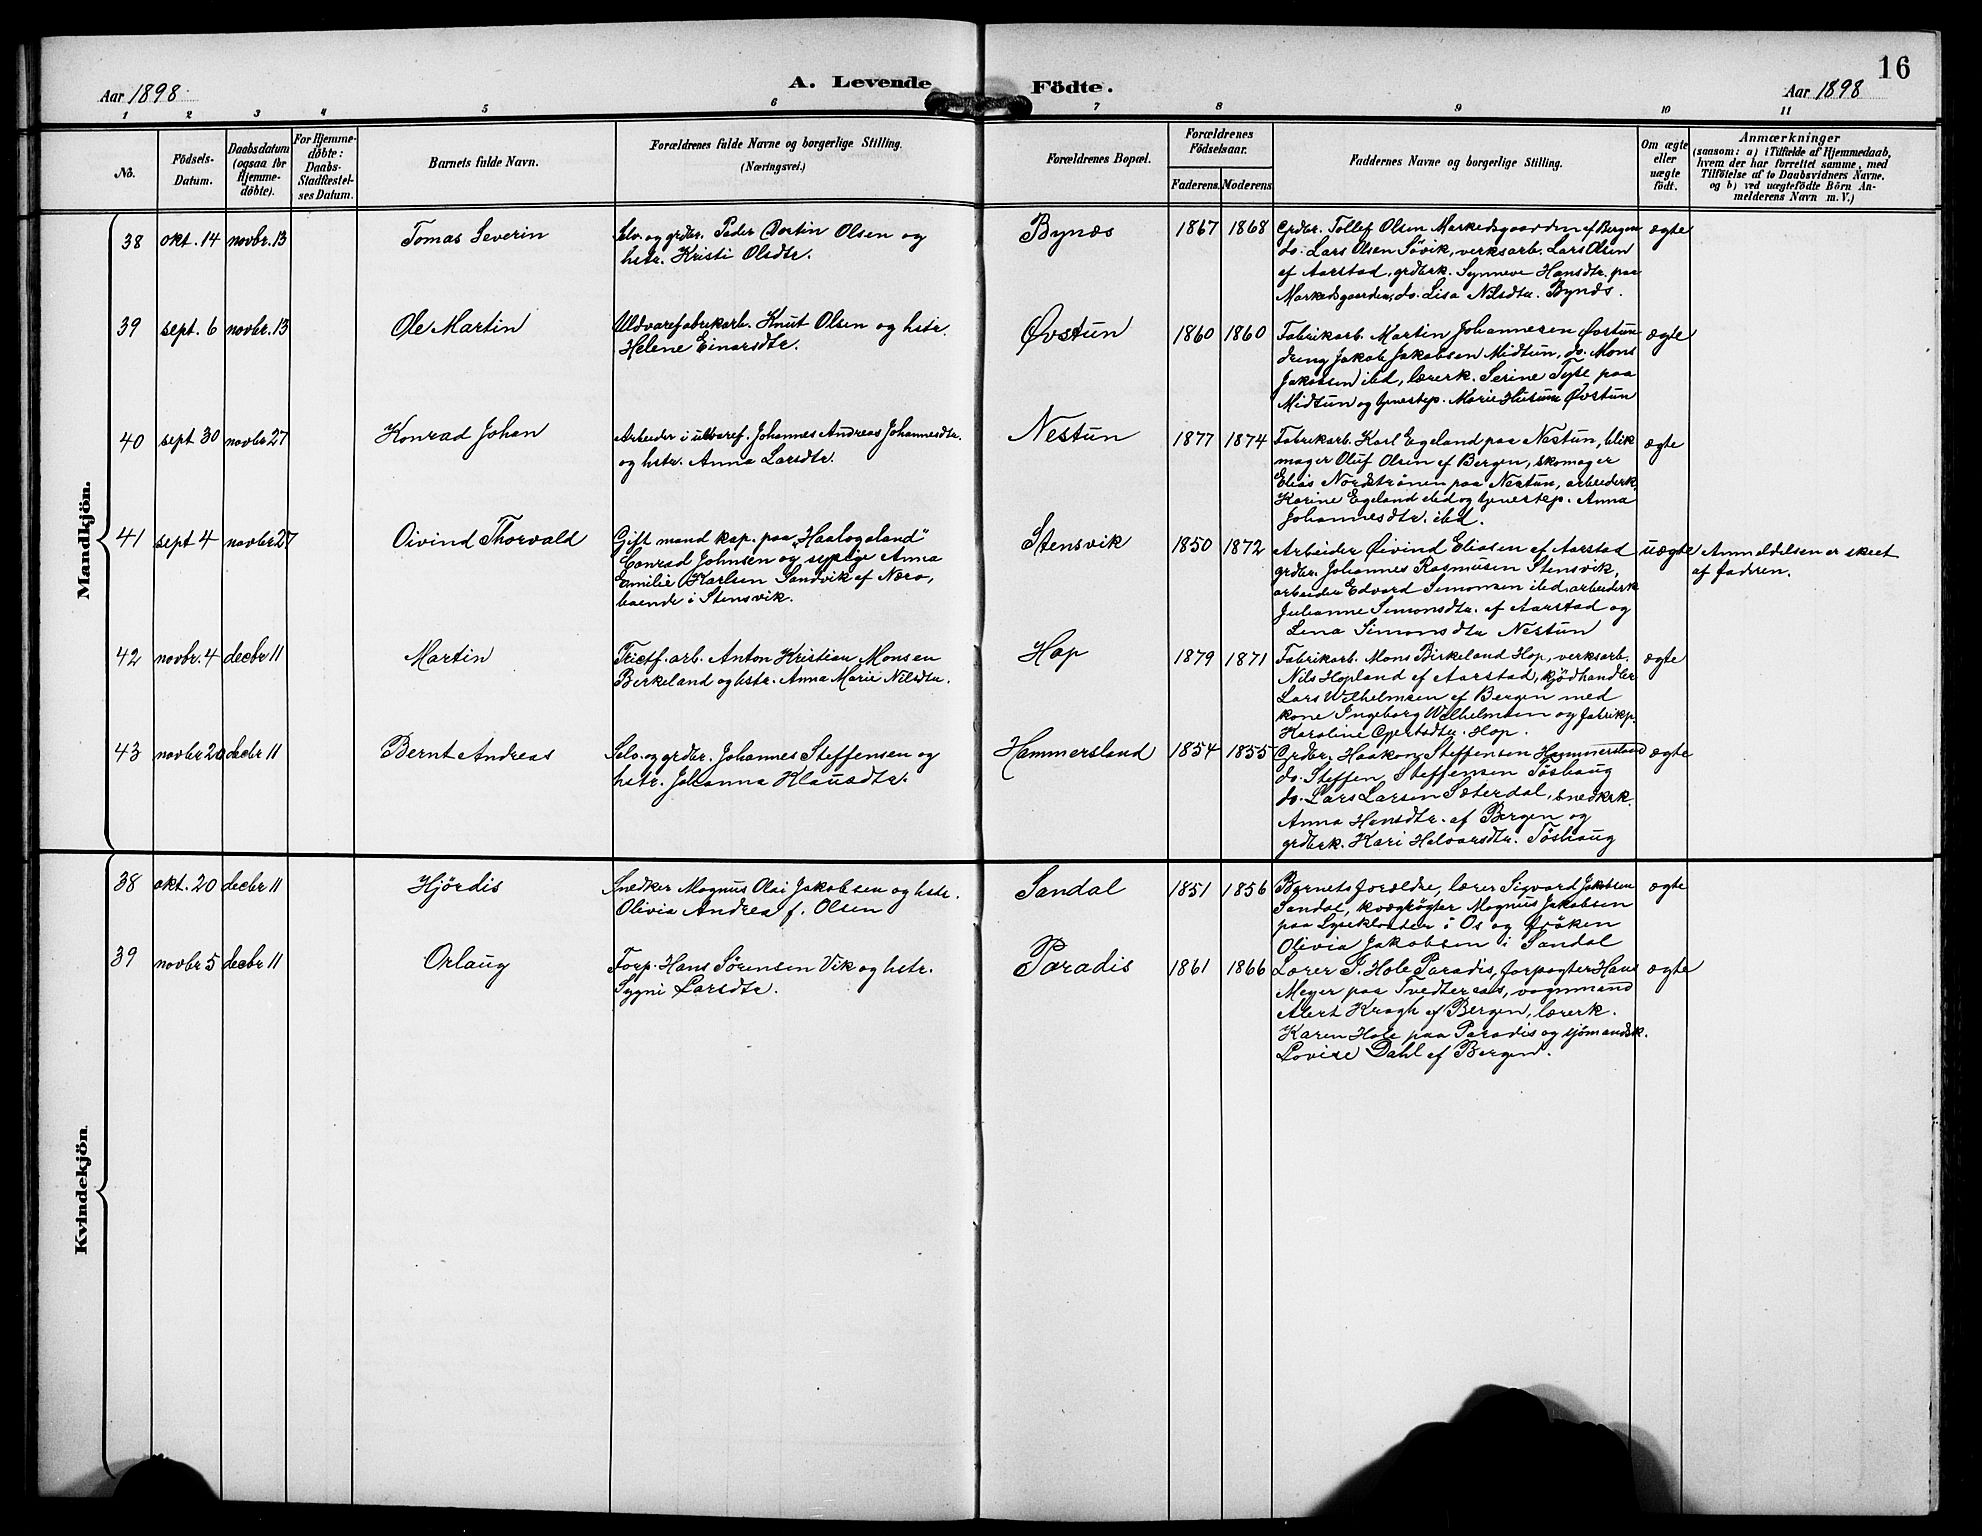 16
Aar 1898.
A. Levende
Födte.
Aar 1898
1 2 3 4 5 6 7 8 9 10 11
No.
Födsels-
Datum.
Daabsdatum
(ogsaa for
Hjemme-
döbte).
For Hjemme-
döbte:
Daabs-
Stadfæstel-
ses Datum.
Barnets fulde Navn.
Forældrenes fulde Navne og borgerlige Stilling.
(Næringsvei.)
Forældrenes Bopæl.
Forældrenes
Födselsaar.
Faderens. Moderens
Faddernes Navne og borgerlige Stilling.
Om ægte
eller
uægte
födt.
Anmærkninger
(saasom: a) i Tilfælde af Hjemmedaab,
hvem der har forrettet samme, med
Tilföielse af to Daabsvidners Navne.
og b) ved uægtefödte Börn An-
melderens Navn m. V.)
Mandkjön.
38 okt. 14 novbr. 13 Tomas Severin
Selv. og grdbr. Peder Martin Olsen og
hstr. Kristi Olsdtr.
Bynæs 1867 1868
Grdbr. Tollef Olsen Markedsgaarden af Bergen
do. Lars Olsen Søvik, verksarb. Lars Olsen
af Aarstad, grdbrk. Synneve Hansdtr. paa
Markedsgaarden, do. Lisa Nilsdtr. Bynæs.
ægte
39 sept. 6 novbr. 13 Ole Martin
Uldvarefabrikarb. Knut Olsen og hstr.
Helene Einarsdtr.
Øvstun 1860 1860
Fabrikarb. Martin Johannesen Øvstun
dreng Jakob Jakobsen Midtun, do. Mons
Jakobsen ibd, lærerk. Serine Tyse paa
Midtun og tjenestep. Marie Husum Øvstun
ægte
40 sept 30 novbr 27 Konrad Johan
Arbeider i uldvaref. Johannes Andreas Johannesdtr.
og hstr. Anna Larsdtr.
Nestun 1877 1874
Fabrikarb. Karl Egeland paa Nestun, blik
mager Oluf Olsen af Bergen, skomager
Elias Nordstrønen paa Nestun, arbeiderk.
Karine Egeland ibd og tjenestep. Anna
Johannesdtr. ibd.
ægte
41 sept 4 novbr 27 Oivind Thorvald
Gift mand kap. paa "Haalogaland"
Conrad Johnsen og ugitte Anna
Emilie Karlsen Sandvik af Nærø,
boende i Stensvik.
Stensvik 1850 1872
Arbeider Øivind Eliasen af Aarstad
grdbr. Johannes Rasmusen Stensvik,
arbeider Edvard Simonsen ibd, arbeiderk
Julianne Simonsdtr. af Aarstad og
Lena Simonsdtr Nestun
uægte
Anmeldelsen er skeet
af faderen.
42 novbr. 4 decbr 11 Martin
Trictf. arb. Anton Kristian Monsen
Birkeland og hstr. Anna Marie Nilsdtr.
Hop 1879 1871
Fabrikarb. Mons Birkeland Hop, verksarb.
Nils Hopland af Aarstad, kjødhandler
Lars Wilhelmsen af Bergen med
kone Ingeborg Wilhelmsen og fabrikp.
Karoline Gjertsdtr. Hop.
ægte
43 novbr 20 decbr 11 Bernt Andreas
Selv. og grdbr. Johannes Steffensen og
hstr. Johanna Klausdtr.
Hammersland 1854 1855
Grdbr. Haakon Steffensen Hammersland
do. Steffen Steffensen Tøshaug
do. Lars Larsen Sæterdal, snedkrk.
Anna Hansdtr. af Bergen og
grdbrk. Kari Halvarsdtr. Tøshaug
ægte
Kvindekjön.
38 okt. 20 decbr 11 Hjørdis
Snedker Magnus Olai Jakobsen og hstr.
Olivia Andrea f. Olsen
Sandal 1851 1856
Barnets forældre, lærer Sigvard Jakobsen
Sandal, kvægrøgter Magnus Jakobsen
paa Lysekloster i Os og frøken
Olivia Jakobsen i Sandal
ægte
39 novbr 5 decbr 11 Orlaug
Forp. Hans Sørensen Vik og hstr.
Sygni Larsdtr.
Paradis 1861 1866
Lærer J. Hole Paradis, forpagter Hans
Meyer paa Tvedteraas, vognmand
Alert Kragh af Bergen, lærerk.
Karen Hole paa Paradis og sjömandsk.
Lovise Dahl af Bergen.
ægte